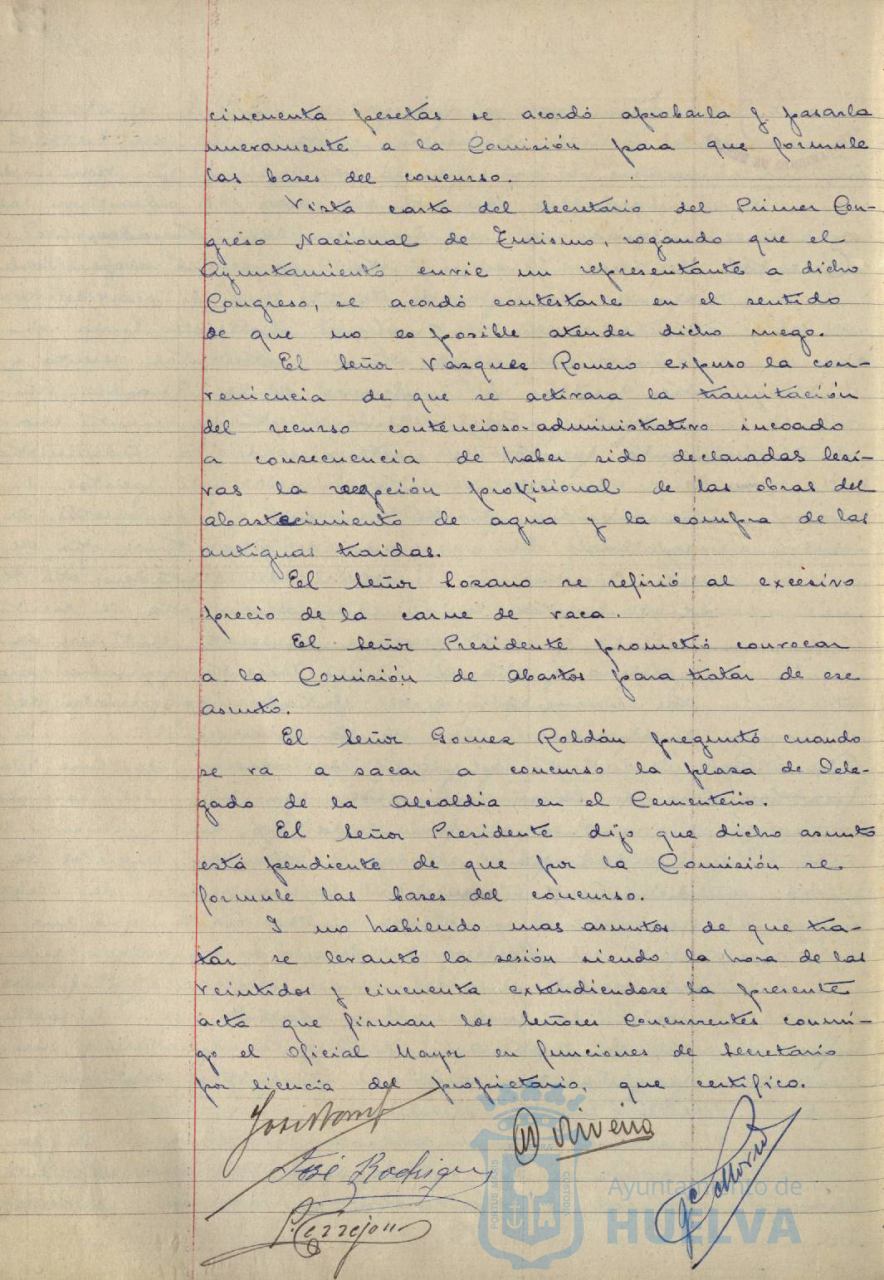 cincuenta pesetas se acordó aprobarla y pasarla
nuevamente a la Comisión para que formule
las bases del concurso.
Vista carta del Secretario del Primer Con-
greso Nacional de Turismo, rogando que el
Ayuntamiento envie un representante a dicho
Congreso, se acordó contestarle en el sentido
de que no es posible atender dicho ruego.
El Señor Vazquez Romero expuso la con-
veniencia de que se activara la tramitación
del recurso contencioso-administrativo incoado
a consecuencia de haber sido declaradas lesi-
vas la recepción provisional de las obras del
abastecimiento de agua y la compra de las
antiguas traidas.
El Señor Lozano se refirió al excesivo
precio de la carne de vaca.
El Señor Presidente prometió convocar
a la Comisión de Abastos para tratar de ese
asunto.
El Señor Gomez Roldán preguntó cuando
se va a sacar a concurso la plaza de Dele-
gado de la Alcaldia en el Cementerio.
El Señor Presidente dijo que dicho asunto
está pendiente de que por la Comisión se
formule las bases del concurso.
I no habiendo mas asuntos de que tra-
tar se levantó la sesión siendo la hora de las
veintidos y cincuenta extendiendose la presente
acta que firman los Señores Concurrentes conmi-
go el Oficial Mayor en funciones de Secretario
por licencia del propietario, que certifico.
José Rodriguez
Terrejon
Ayuntamiento de
HUELVA